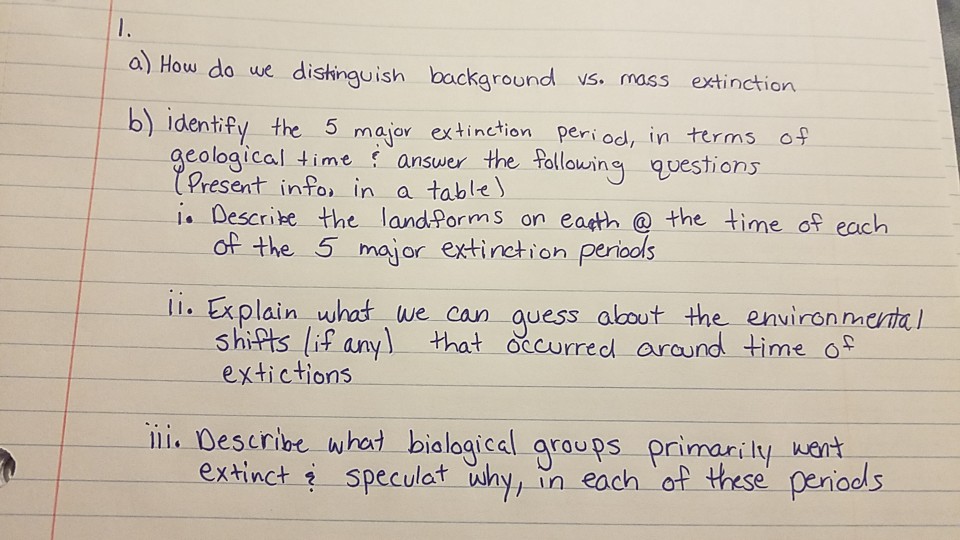 1.
a) How do we distinguish background vs. mass extinction
b) identify the 5 major extinction period, in terms of
geological time & answer the following questions
(Present info, in a table)
i. Describe the landforms on earth @ the time of each
of the 5 major extinction periods
ii. Explain what we can guess about the environmental
shifts (if any) that occurred around time of
extictions
iii. Describe what biological groups primarily went
extinct & speculat why, in each of these periods